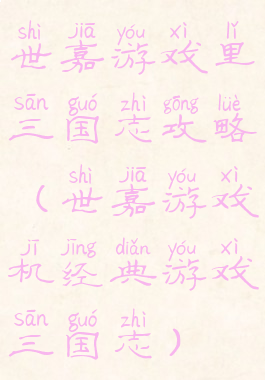 shì jiā yóu xì lǐ
世嘉游戏里
sān guó zhì gōng lüè
三国志攻略
shì jiā yóu xì
（世嘉游戏
jī jīng diǎn yóu xì
机经典游戏
sān guó zhì
三国志）